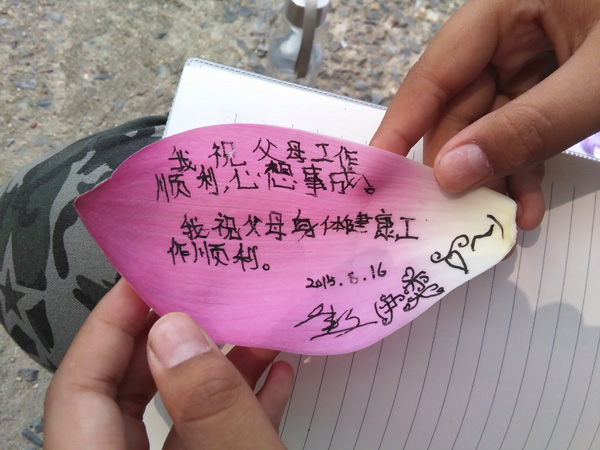 我祝父母工作
顺利,心想事成。
我祝父母身体健康工
作顺利。
2015.8.16